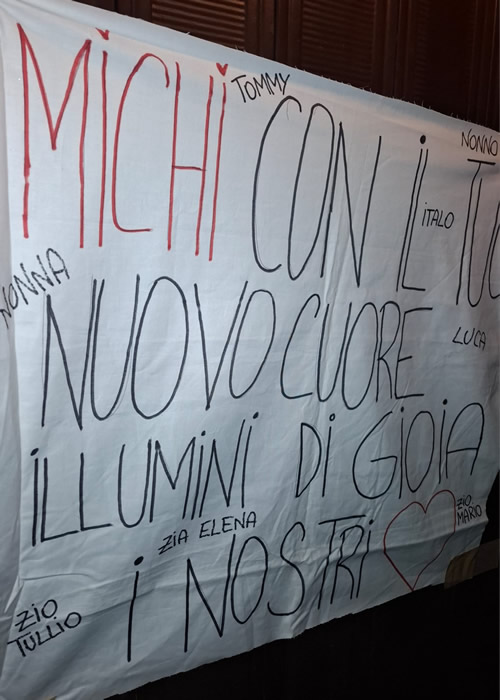 MiCHi TOMMY
CON iL TUO
NONNO
iTALO
NONNA
NUOVO CUORE
LUCA
iLLUMiNi Di GiOiA
ZiO MARiO
ZiA ELENA
i NOSTRi
ZiO
TULLiO